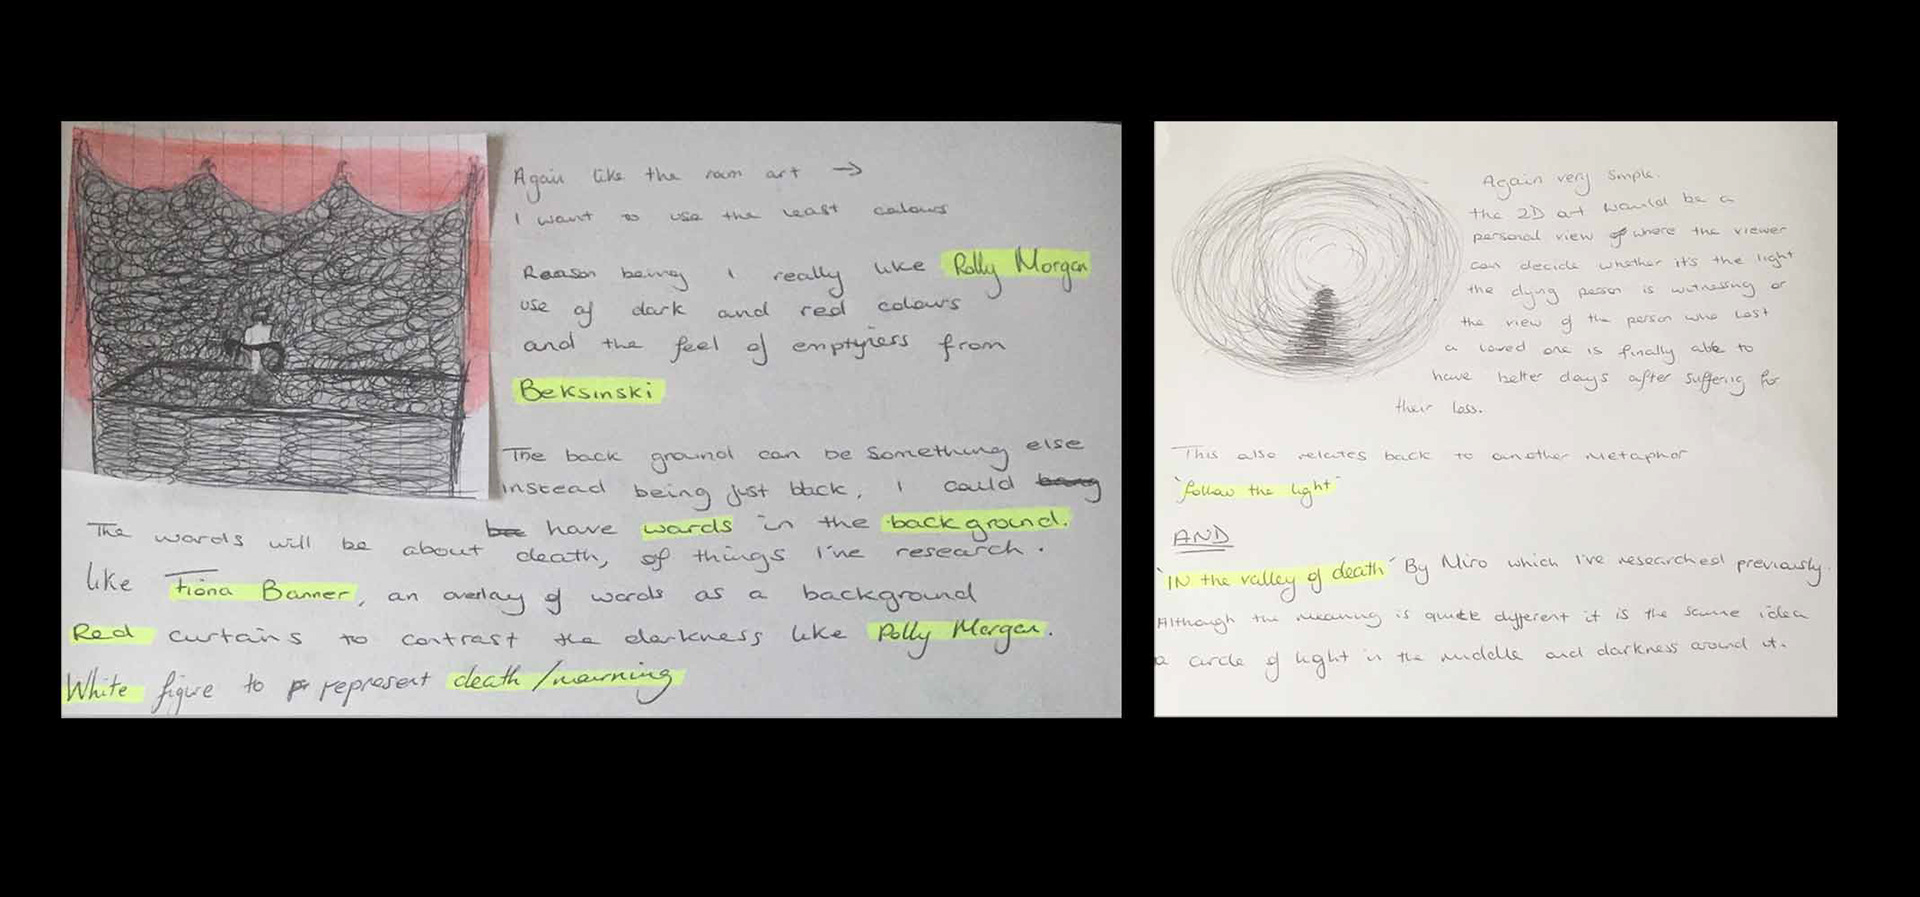 Again like the room art →
I want to use the least colours
Reason being I really like Polly Morgan
use of dark and red colours
and the feel of emptyness from
Beksinski
The back ground can be something else
instead being just black, I could being
be have words in the background.
The words will be about death, of things I've research.
like Fiona Banner, an overlay of words as a background
Red curtains to contrast the darkness like Polly Morgan.
White figure to represent death/mourning
Again very simple.
the 2D art would be a
personal view of where the viewer
can decide whether it's the light
the dying person is witnessing or
the view of the person who lost
a loved one is finally able to
have better days after suffering for
their loss.
This also relates back to another metaphor
'follow the light'
AND
'IN the valley of death' By Miro which I've researched previously.
Although the meaning is quite different it is the same idea
a circle of light in the middle and darkness around it.